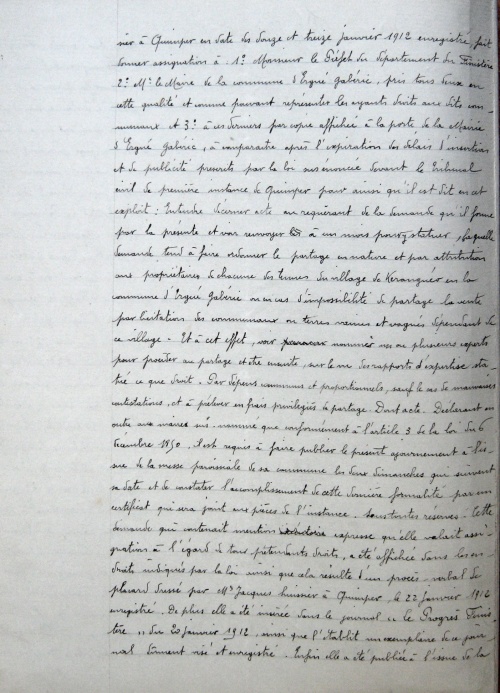 sier à Quimper en date des douze et treize janvier 1912 enregistré, fait
donner assignation à 1° Monsieur le Préfet du département du Finistère
2° Mr le Maire de la commune d'Ergué Gabéric, pris tous deux en
cette qualité et comme pouvant représenter les ayants droits aux dits com-
munaux et 3° à ces derniers par copie affichée à la porte de la Mairie
d'Ergué Gabéric, à comparaître après l'expiration des délais d'insertion
et de publicité prescrits par la loi susénoncée devant le Tribunal
civil de première instance de Quimper pour ainsi qu'il est dit en cet
exploit : Entendre décerner acte au requérant de la demande qu'il forme
par la présente et voir renvoyer à un mois pour y statuer, laquelle
demande tend à faire ordonner le partage en nature et par attribution
aux propriétaires de chacune des tenues du village de Keranguéo en la
commune d'Ergué Gabéric ou en cas d'impossibilité de partage la vente
par licitation des communaux ou terres vaines et vagues dépendant de
ce village. Et à cet effet, voir nommer un ou plusieurs experts
pour procéder au partage et être ensuite, sur le vu du rapport d'expertise sta-
tué ce que droit. Par dépens communs et proportionnels, sauf le cas de mauvaises
contestations, et à prélever en frais privilégiés de partage. Dont acte. Déclarant en
outre aux maires sus-nommé que conformément à l'article 3 de la loi du 6
décembre 1850, il est requis à faire publier le présent ajournement à l'is-
sue de la messe paroissiale de sa commune les deux dimanches qui suivent
sa date et de constater l'accomplissement de cette dernière formalité par un
certificat qui sera joint aux pièces de l'instance. Sous toutes réserves. Cette
demande qui contenait mention expresse qu'elle valait assi-
gnation à l'égard de tous prétendants droits, a été affichée dans les en-
droits indiqués par la loi ainsi que cela résulte d'un procès-verbal de
placard dressé par Me Jacques huissier à Quimper, le 22 janvier 1912
enregistré. De plus elle a été insérée dans le journal "Le Progrès du Finis-
tère" du 20 janvier 1912, ainsi que l'établit un exemplaire de ce jour-
nal dûment visé et enregistré. Enfin elle a été publiée à l'issue de la